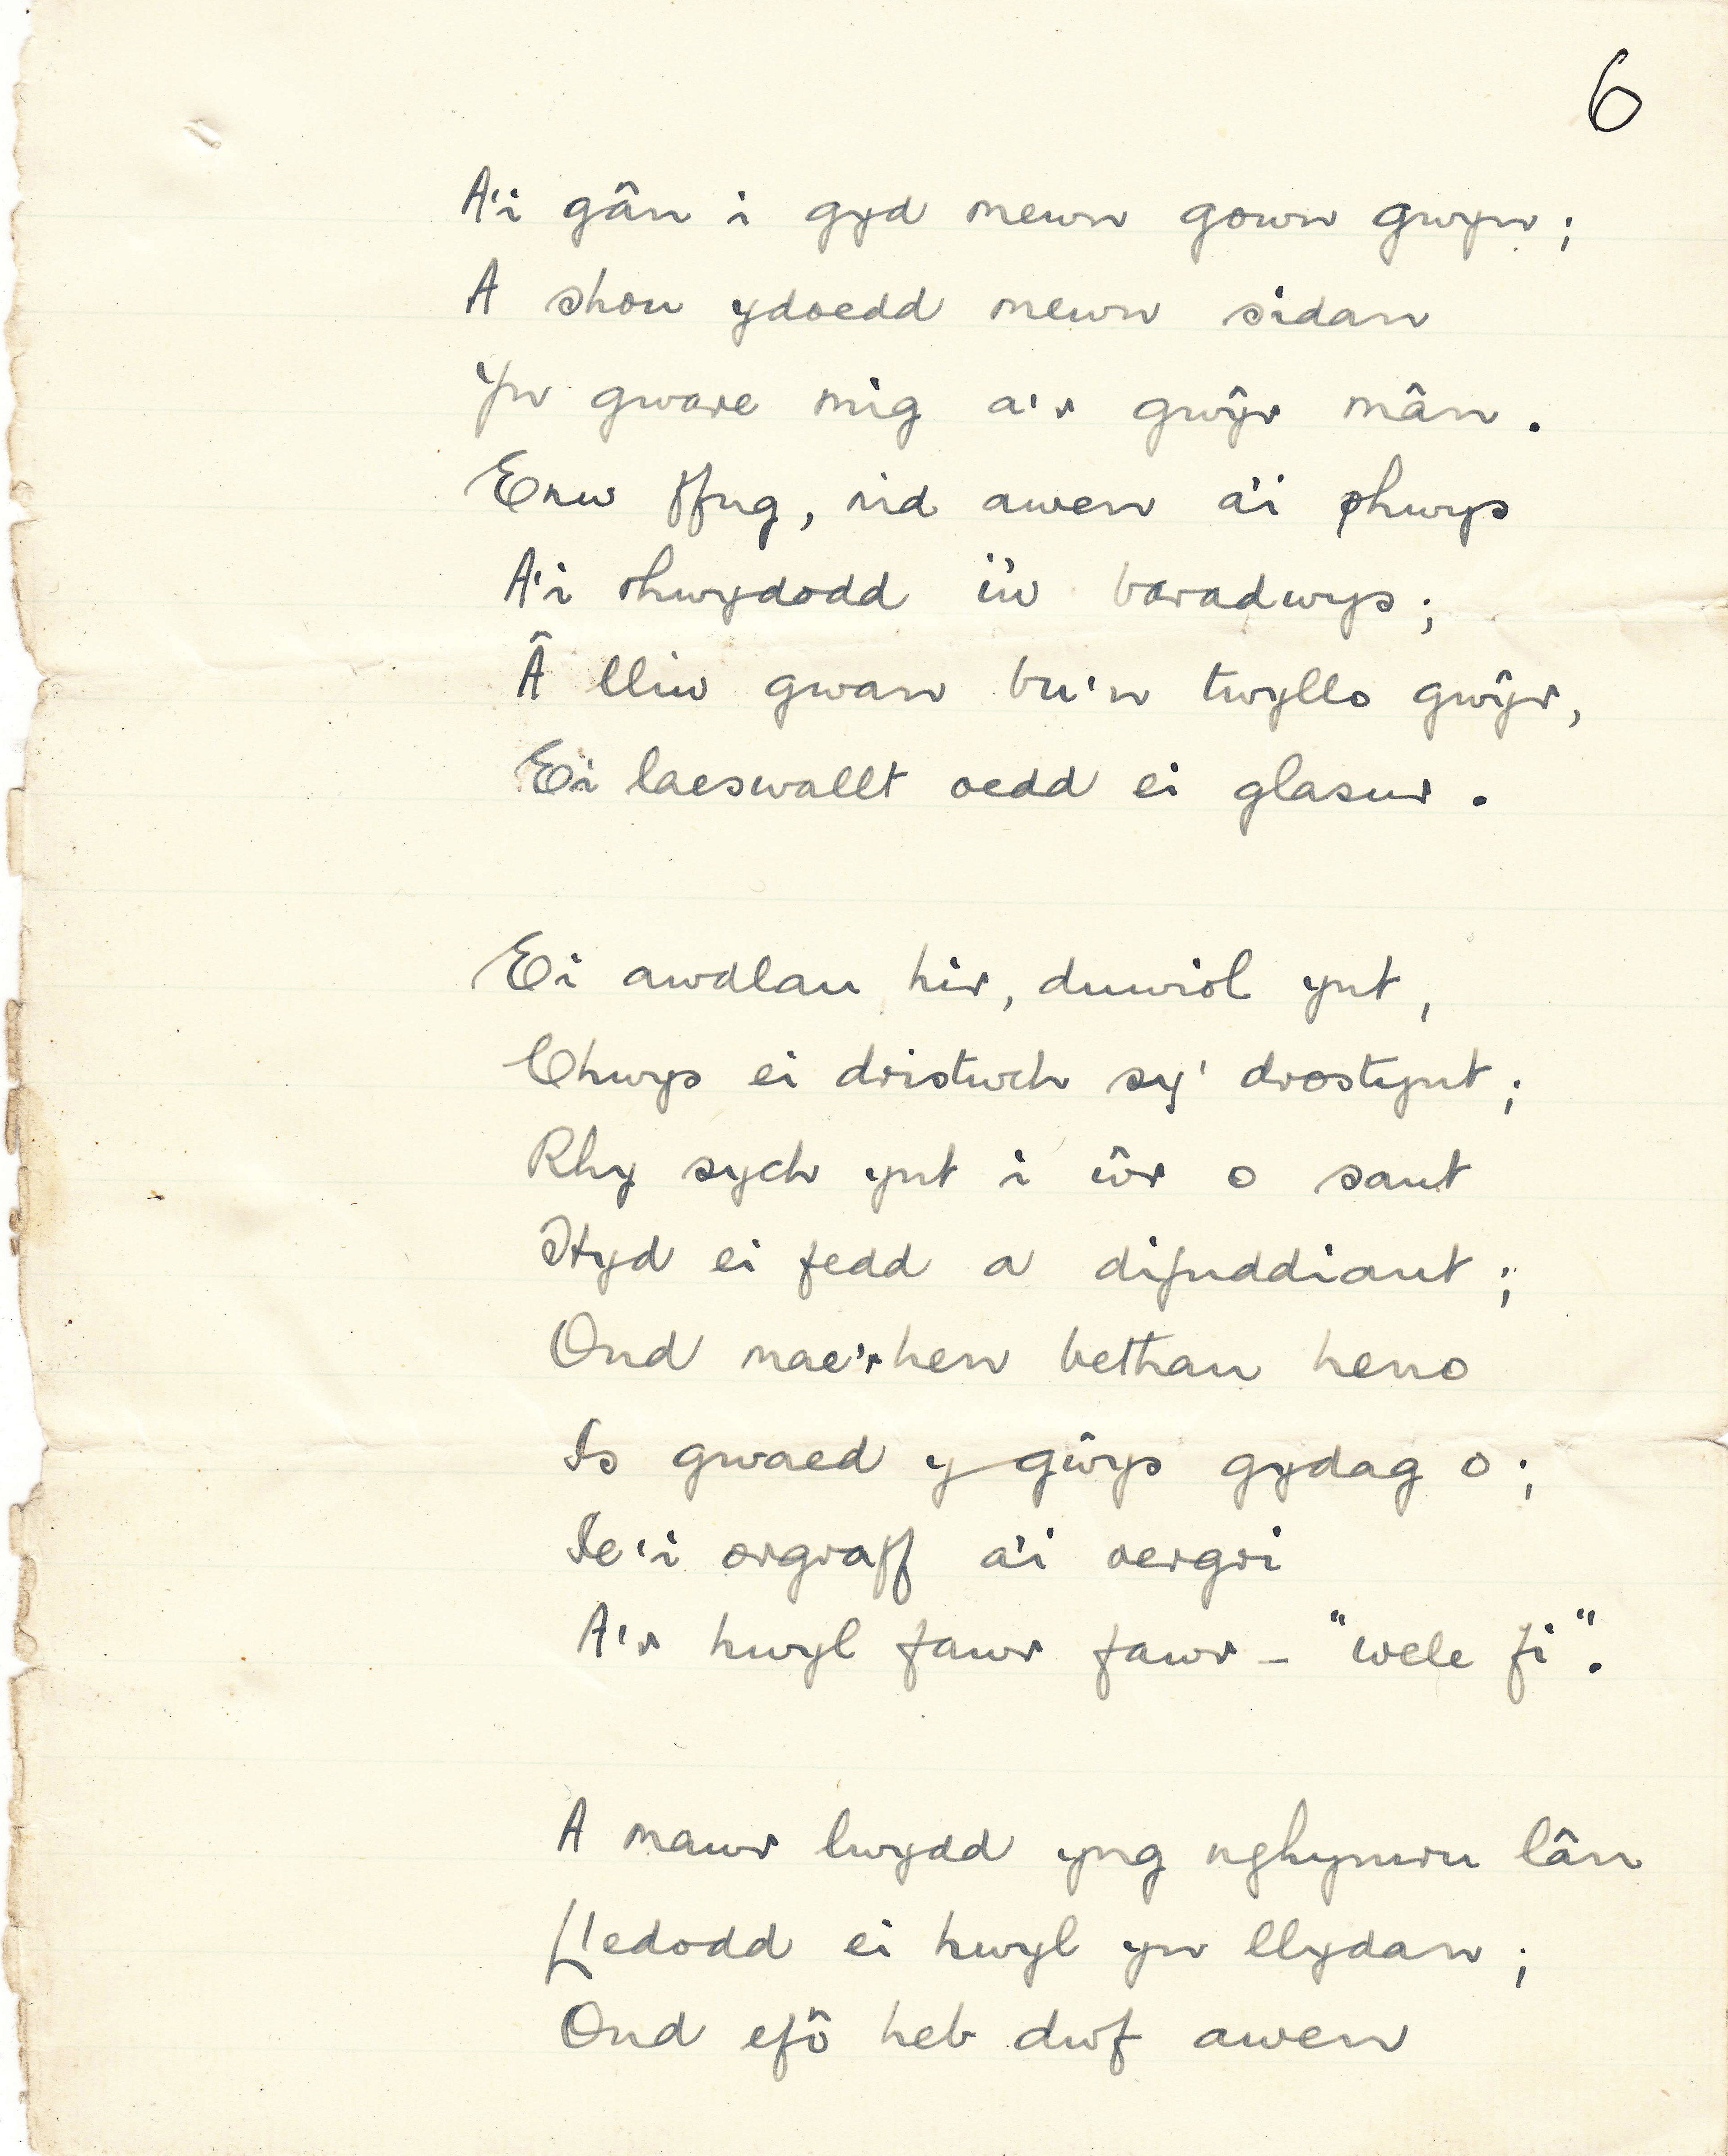 6
A'i gân i gyd mewn gown gwyn;
A shou ydoedd mewn sidan
Yn gware mig a'r gwŷr mân.
Enw ffug, nid awen a'i phwys
A'i rhwydodd i'w baradwys;
Â lliw gwan bu'n twyllo gwŷr,
Ei laeswallt oedd ei glasur.
Ei awdlau hir, duwiol ynt,
Chwys ei dristwch sy' drostynt;
Rhy sych ynt i ŵr o sant
Hyd ei fedd a difuddiant;
Ond mae'r hen bethau heno
Is gwaed y gŵys gydag o;
Ie'i orgraff a'i oergri
A'r hwyl fawr fawr – "wele fi".
A mawr lwydd yng nghymru lân
Lledodd ei hwyl yn llydan;
Ond efô heb dwf awen